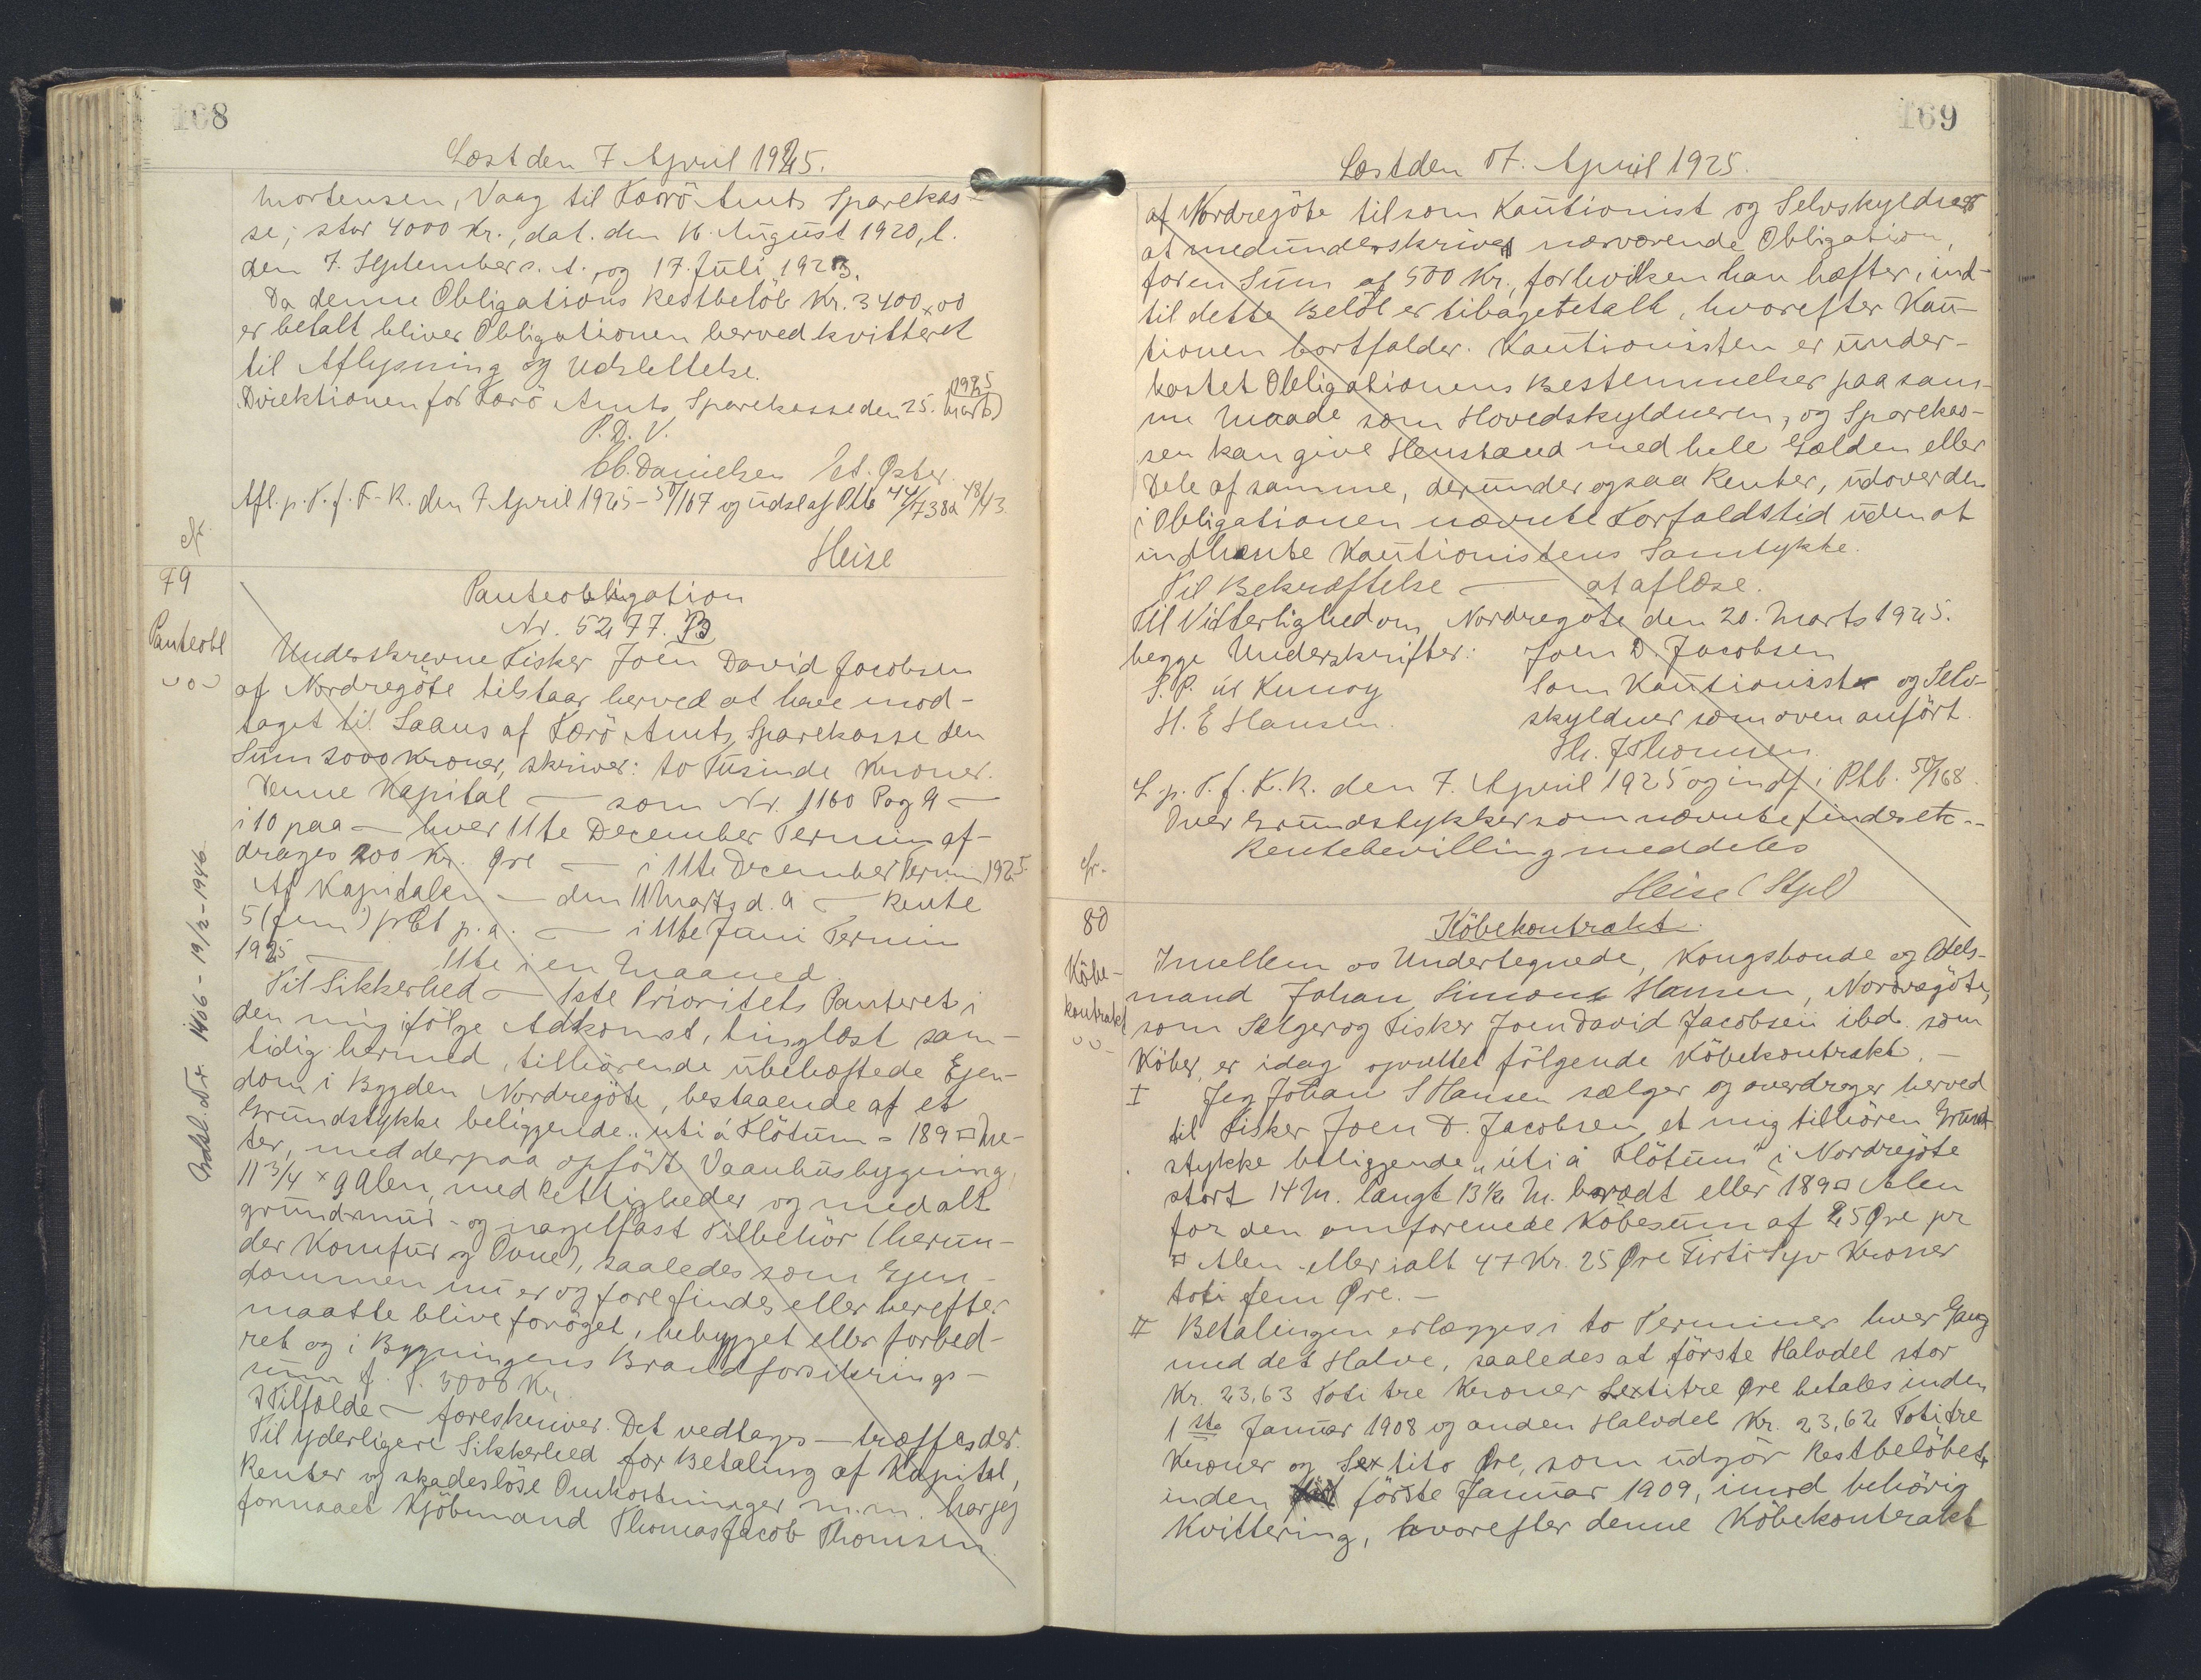 168
Læst den 7 April 1925.
Mortensen, Vaag til Færö Amts Sparekas-
se, stor 4000 Kr., dat. den 16. August 1920, l.
den 7. September s. A. og 17. Juli 1923.
Da denne Obligations Restbelöb Kr. 3400,00
er betalt bliver Obligationen herved kvitteret
til Aflysning og Udslettelse.
Direktionen for Færö Amts Sparekasse den 25. Marts 1925
P. D. V.
C. Danielsen Øster
Afl. p. T. f. F. R. den 7 April 1925 - 50/167 og udsl af Ptb 44/738a 48/43.
Heise
cfr.
79
Panteobl
Panteobligation
Nr. 5277. B
Underskrevne Fisker Joen David Jacobsen
af Nordregöte tilstaar herved at have mod-
taget til Laans af Færö Amts Sparekasse den
Sum 2000 Kroner, skriver: to Tusinde Kroner.
Denne Kapital — som Nr. 1160 Pag 9 —
i 10 paa — hver 11te December Termin af-
drages 200 Kr. Øre — i 11te December Termin 1925.
Af Kapitalen — den 11 Marts d. A — Rente
5 (fem) pCt p. a. — i 11te Juni Termin
1925 — 11te i en Maaned
Til Sikkerhed — 1ste Prioritets Panteret i
den mig ifölge Adkomst, tinglæst sam-
tidig hermed, tilhörende ubehæftede Ejen-
dom i Bygden Nordregöte, bestaaende af et
Grundstykke beliggende „uti á Flötum" = 189 □ Me-
ter, med derpaa opfört Vaanhusbygning,
11 3/4 x 9 Alen, med Rettigheder og med alt
grund-mur- og nagelfast Tilbehör (herun-
der Komfur og Ovne), saaledes som Ejen-
dommen nu er og forefindes eller herefter
maatte blive foröget, bebygget eller forbed-
ret og i Bygningens Brandforsikrings-
sum f. T. 3000 Kr.
I Tilfælde — foreskriver. Det vedtages — træffes der.
Til yderligere Sikkerhed for Betaling af Kapital,
Renter og skadeslöse Omkostninger m.m. har jeg
formaaet Kjöbmand Thomas Jacob Thomsen
Udsl. Nr. 1466 - 19/2 - 1946
169
Læst den 7. April 1925.
af Nordregöte til som Kautionist og Selvskyldner
at medunderskrive nærværende Obligation,
for en Sum af 500 Kr., for hvilken han hæfter, ind-
til dette Belöb er tilbagebetalt, hvorefter Kau-
tionen bortfalder. Kautionisten er under-
kastet Obligationens Bestemmelser paa sam-
me Maade som Hovedskyldneren, og Sparekas-
sen kan give Henstand med hele Gælden eller
Dele af samme, derunder ogsaa Renter, udover den
i Obligationen nævnte Forfaldstid uden at
indhente Kautionistens Samtykke.
Til Bekræftelse — at aflæse.
Til Vitterlighed om Nordregöte den 20. Marts 1925.
begge Underskrifter: Joen D. Jacobsen
S. P. úr Kunoy Som Kautionist og Selv-
H. E Hansen. skyldner som oven anfört.
Th. J Thomsen.
L. p. T. f. F. R. den 7. April 1925 og indf i Ptb. 50/168.
Over Grundstykker som nævnte findes etc..
Rentebevilling meddeles
Heise (Stpl)
cfr.
80
Köbe-
kontrakt
Köbekontrakt.
Imellem os Undertegnede, Kongsbonde og Odels-
mand Johan Simon Hansen, Nordregöte,
som Sælger og Fisker Joen David Jacobsen ibd. som
Köber, er idag oprettet fölgende Köbekontrakt. —
I Jeg Johan S Hansen sælger og overdrager herved
til Fisker Joen D. Jacobsen et mig tilhören Grund-
stykke beliggende „úti á Flötum" i Nordregöte
stort 14 M. langt 13½ M. bredt eller 189 □ Alen
for den omforenede Köbesum af 25 Øre pr
□ Alen eller ialt 47 Kr. 25 Øre Firti Syv Kroner
toti fem Øre. —
II Betalingen erlægges i to Terminer hver Gang
med det Halve, saaledes at förste Halvdel stor
Kr. 23,63 Toti tre Kroner Sexti tre Øre betales inden
1ste Januar 1908 og anden Halvdel Kr. 23,62 Toti tre
Kroner og Sexti to Øre, som udgör Restbelöbet,
inden förste Januar 1909, imod behörig
Kvittering, hvorefter denne Köbekontrakt